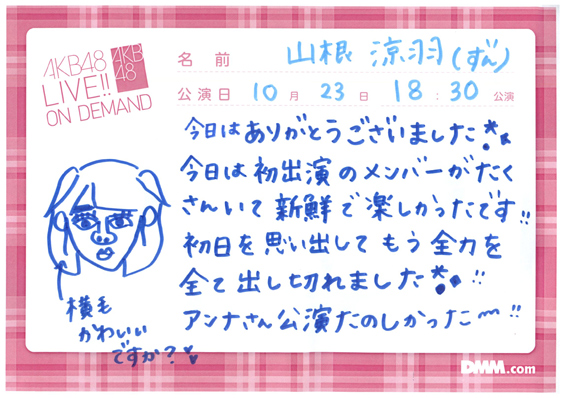 AKB48
LIVE!!
ON DEMAND
AKB
48
名前 山根 涼羽(ずん)
公演日 10月 23日 18:30 公演
今日はありがとうございました
今日は初出演のメンバーがたく
さんいて新鮮で楽しかったです!!
初日を思い出してもう全力を
全て出し切れました!!
アンナさん公演たのしかったー!!
横毛
かわいい
ですか?
DMM.com